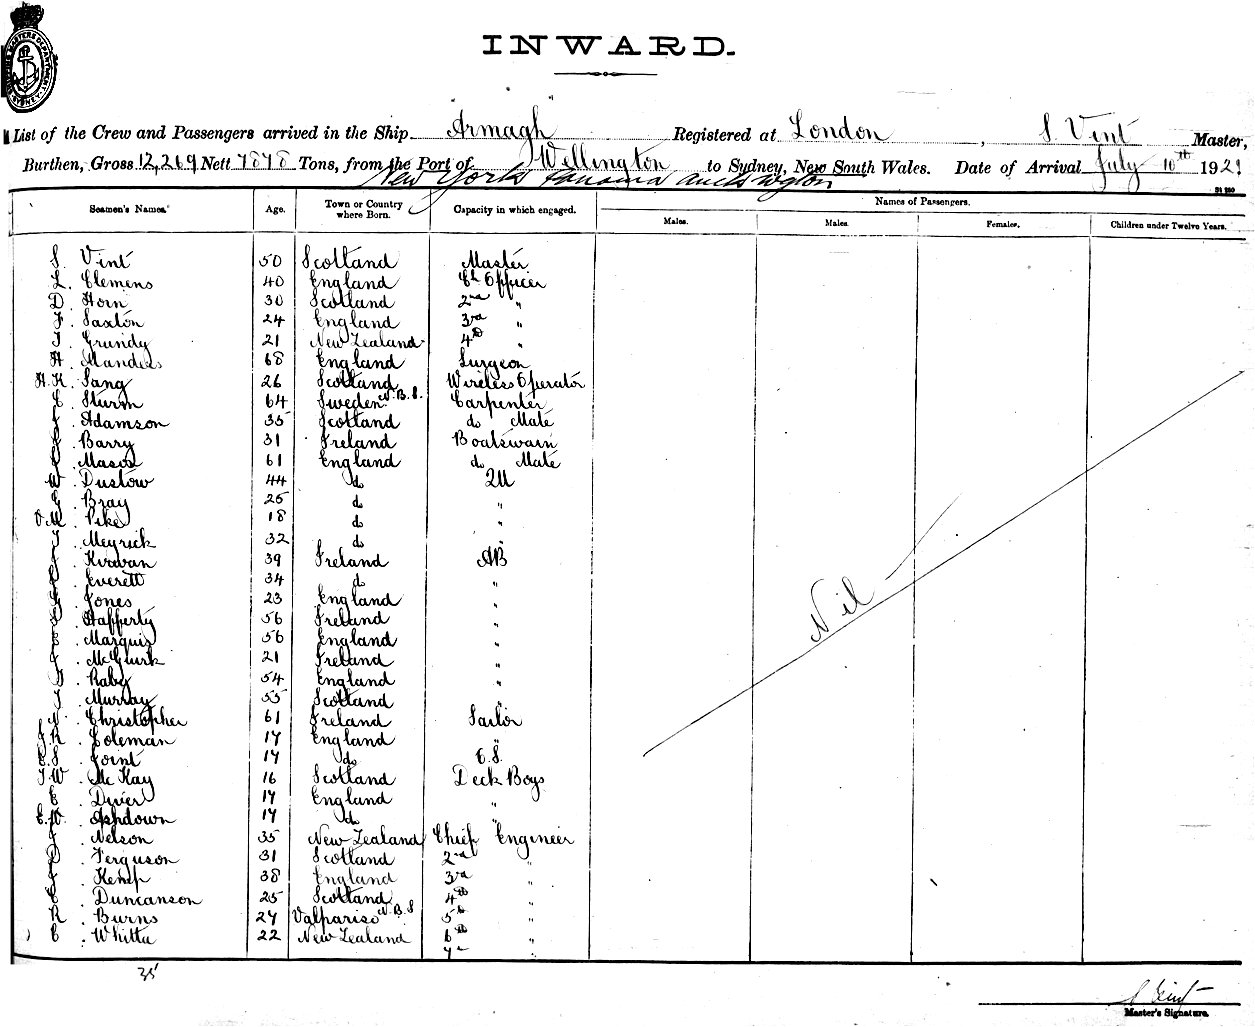 INWARD.
List of the Crew and Passengers arrived in the Ship "Armagh" Registered at London, S Vint Master,
Burthen, Gross 12,269 Nett 7878 Tons, from the Port of Wellington to Sydney, New South Wales. Date of Arrival July 10th 1921
New York Panama
Names of Passengers.
Seamen's Names. Age. Town or Country where Born. Capacity in which engaged. Males. Males. Females. Children under Twelve Years.
S. Vint 50 Scotland Master
L. Clemens 40 England Ch Officer
D. Horn 30 Scotland 2nd "
F. Saxton 24 England 3rd "
J. Grundy 21 New Zealand 4th "
H. 68 England Surgeon
H.K. Sang 26 Scotland Wireless Operator
C. Sturm 64 Sweden N.B.S. Carpenter
J. Adamson 35 Scotland do Mate
Barry 31 Ireland Boatswain
J. Mason 61 England do Mate
W. Dustow 44 do QM
G. Bray 25 do "
V.M. Pike 18 do "
J. Meyrick 32 do "
J. Kirwan 39 Ireland AB
Everett 34 do "
G. Jones 23 England "
Hafferty 56 Ireland "
Marquis 56 England "
J. McGurk 21 Ireland "
Raby 54 England "
J. Murray 55 Scotland "
Christopher 61 Ireland Sailor
J.R. Coleman 17 England "
C.S. Joint 17 do O.S.
J.W. McKay 16 Scotland Deck Boys
C. Diver 17 England "
E.W. Ashdown 17 do "
J. Nelson 35 New Zealand Chief Engineer
D. Ferguson 31 Scotland 2nd "
J. Kemp 38 England 3rd "
C. Duncanson 25 Scotland 4th "
R. Burns 27 Valpariso N.B.S 5th "
C. Whitta 22 New Zealand 6th "
7th "
Nil
35
S Vint
Master's Signature.